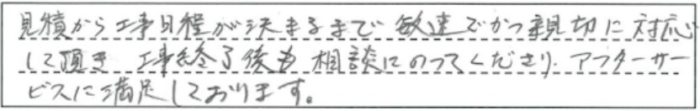 見積から工事日程が決まるまで敏速でかつ親切に対応
して頂き 工事終了後も相談にのってくださり、アフターサー
ビスに満足しております。